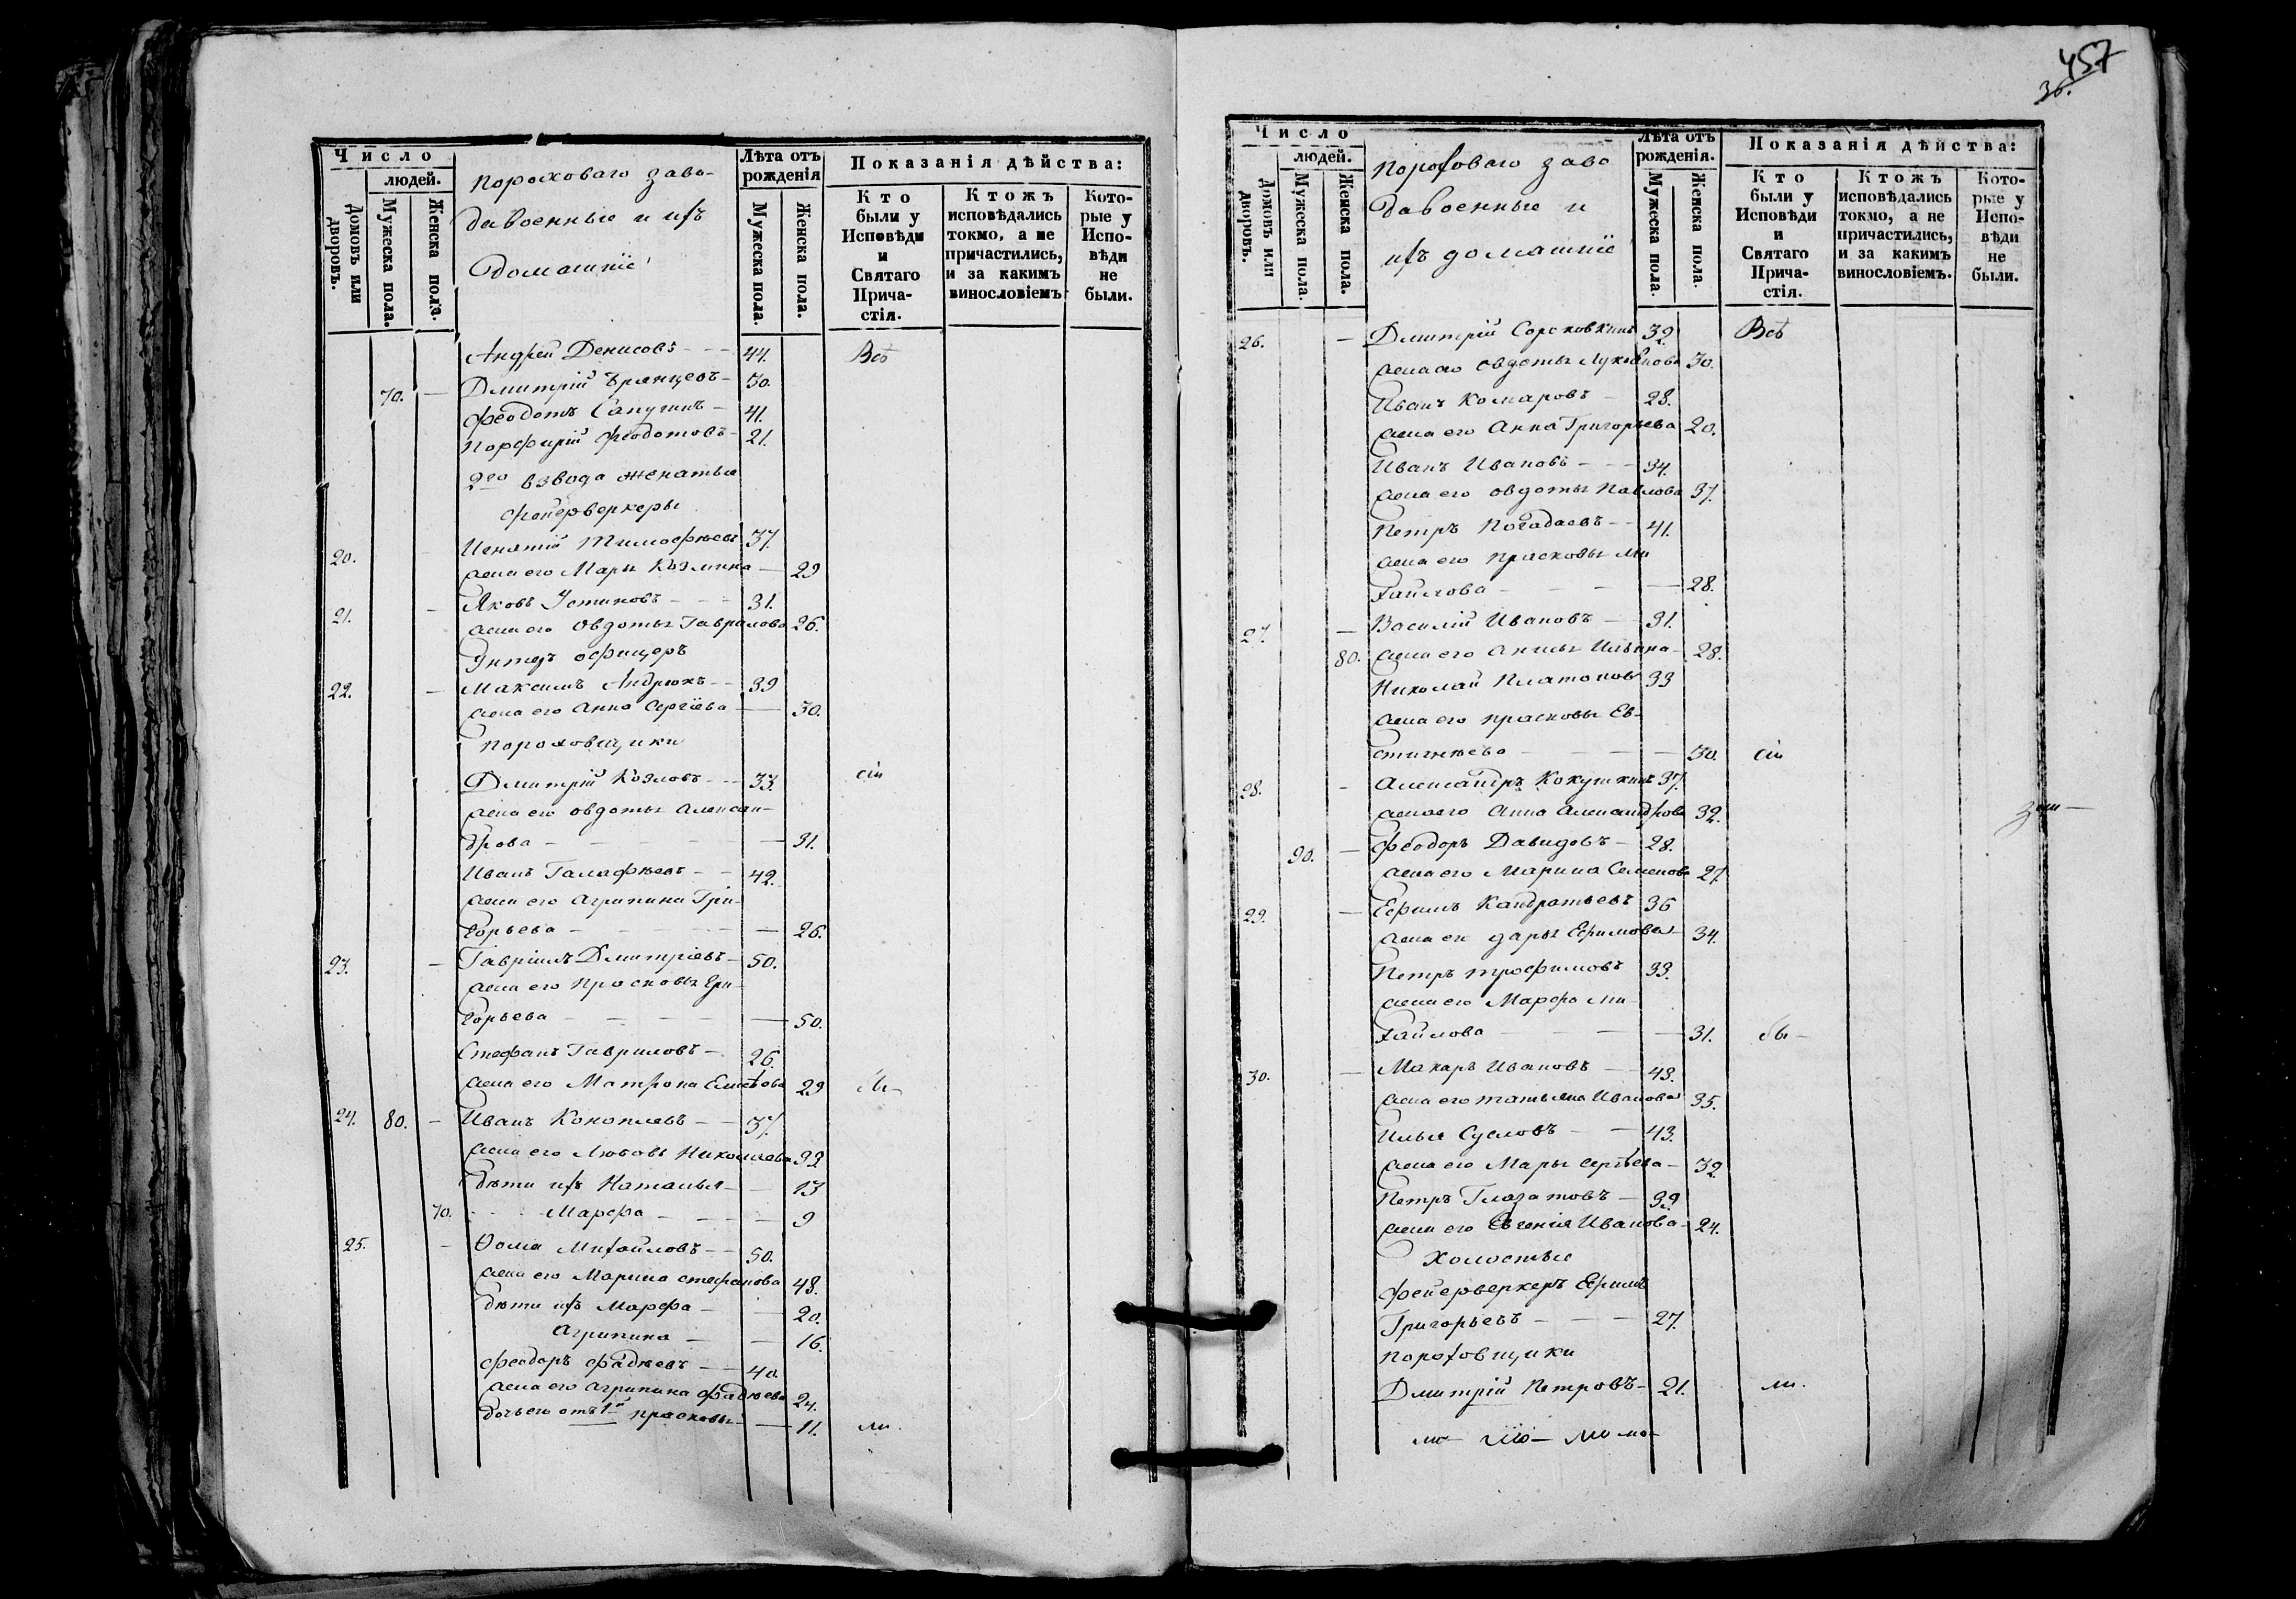 457
36.
Число
людей.
Домовъ или дворовъ.
Мужеска пола.
Женска пола.
Пороховаго заво-
да военные и ихъ
домашніе
Лѣта отъ рожденія
Мужеска пола.
Женска пола.
Показанія дѣйства:
Кто были у Исповѣди и Святаго Прича-стія.
Ктожъ исповѣдались токмо, а не причастились, и за какимъ винословіемъ
Кото-рые у Испо-вѣди не были.
Андрей Денисовъ - - 44. Всѣ
70. — Дмитрій Брянцевъ - 30.
Феодотъ Сапунин - 41.
Порфирій Феодотовъ - 21.
2го взвода женатые
фейерверкеры
20. Игнатій Тимофѣевъ 37.
жена его Марья Козмина — 29
21. - Яковъ Устиновъ - - 31.
жена его Овдотья Гаврилова 26.
Унтеръ офицеръ
22. - Максимъ Андрюкъ - - 39
жена его Анна Сергіева — 30.
пороховщики
Дмитрій Козловъ - - 33. сіи
жена его овдотья Алексан-
дрова - - - - 31.
Иванъ Галафѣевъ - - 42.
жена его Агрипина Гри-
горьева - - - - 26.
23. - Гавріилъ Дмитріевъ - 50.
жена его Просковья Гри-
горьева - - - - 50.
Стефанъ Гавриловъ - 26.
жена его Матрона 29
24. 80. - Иванъ Коноплевъ - - 37.
жена его Любовь Николаева 32
дѣти ихъ Наталья - - 13
70. Марфа - - - 9
25. - Ѳома Михайловъ - - 50.
жена его Марина Стефанова 48.
дѣти ихъ Марфа - - 20.
Агрипина - - 16.
Феодоръ Фадѣевъ - - 40
жена его Агрипина Фадѣева 24.
дочь его отъ 1й прасковья - 11. ли.
Число
людей.
Домовъ или дворовъ.
Мужеска пола.
Женска пола.
Пороховаго заво
да военные и
ихъ домашніе
Лѣта отъ рожденія.
Мужеска пола.
Женска пола.
Показанія дѣйства:
Кто были у Исповѣди и Святаго Прича-стія.
Ктожъ исповѣдались токмо, а не причастились, и за какимъ винословіемъ.
Кото-рые у Испо-вѣди не были.
26. — Дмитрій 32. Всѣ
жена его овдотья Лукьянова 30.
Иванъ Комаровъ - 28.
жена его Анна Григорьева 20.
Иванъ Ивановъ - - 34.
жена его овдотья Павлова 37.
Петръ Погадаевъ - - 41.
жена его прасковья Ми
хайлова - - - 28.
27. — Василій Ивановъ - 31.
80. жена его Анисья Ильина - 28.
Николай Платоновъ 33
жена его прасковья Ев-
стигнѣева - - - 30. сіи
28. - Александръ Кокушкинъ 37.
жена его Анна Александрова 32.
90. — Феодоръ Давидовъ - 28.
жена его Марина Семенова 27.
29. — Ефимъ Кандратьевъ 36
жена его дарья Ефимова 34.
Петръ трофимовъ 33.
жена его Марфа Ми-
хайлова - - - 31. бы -
30. — Макаръ Ивановъ - 43.
жена его татьяна Иванова 35.
Илья Сусловъ - - 43.
жена его Марья Сергѣева - 32
Петръ Глазатовъ - 39.
жена его Евгенія Иванова - 24.
Холостые
фейерверкеръ Ефимъ
Григорьевъ - - - 27.
Пороховщики
Дмитрій Петровъ - 21. ли.